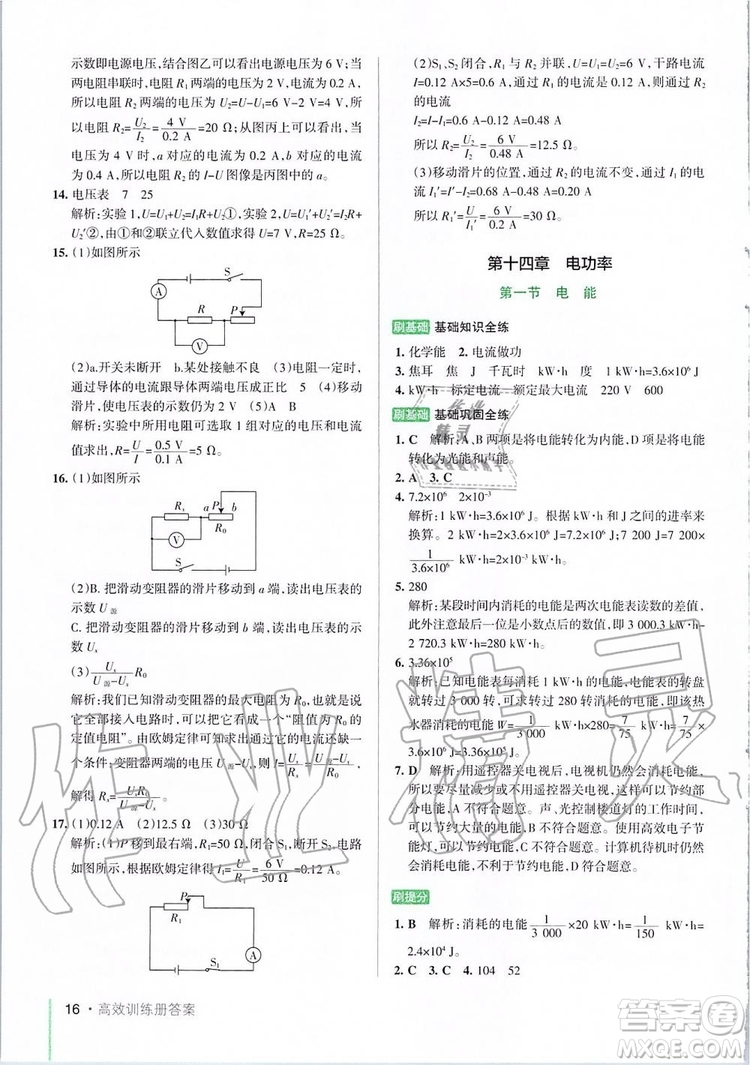 示数即电源电压，结合图乙可以看出电源电压为 6 V；当
两电阻串联时，电阻 R₁ 两端的电压为 2 V，电流为 0.2 A，
所以电阻 R₂ 两端的电压为 U₂=U-U₁=6 V-2 V=4 V，
所以电阻 R₂=U₂/I₂=4 V/0.2 A=20 Ω；从图丙上可以看出，当
电压为 4 V 时，a 对应的电流为 0.2 A，b 对应的电流为
0.4 A，所以电阻 R₂ 的 I-U 图像是丙图中的 a。
14. 电压表 7 25
解析：实验 1，U=U₁+U₂=I₁R+U₂①，实验 2，U=U₁′+U₂′=I₂R+
U₂′②，由①和②联立代入数值求得 U=7 V，R=25 Ω。
15. (1)如图所示
A
S
R
P
V
(2)a.开关未断开 b.某处接触不良 (3)电阻一定时，
通过导体的电流跟导体两端电压成正比 5 (4)移动
滑片，使电压表的示数仍为 2 V (5)A B
解析：实验中所用电阻可选取 1 组对应的电压与电流，
则电阻 R=U/I=0.5 V/0.1 A=5 Ω。
16. (1)如图所示
Rₓ
a
P
b
R₀
V
S
(2)B. 把滑动变阻器的滑片移动到 a 端，读出电压表的
示数 U源
C. 把滑动变阻器的滑片移动到 b 端，读出电压表的示
数 Uₓ
(3)Uₓ/(U源-Uₓ) R₀
解析：我们已知滑动变阻器的最大电阻为 R₀，将它的
全部接入电路时，滑动变阻器相当于一个“阻值为 R₀ 的
定值电阻”。由欧姆定律可以知道，电流值还缺一
个条件：变阻器两端的电压 U源-Uₓ，则 I=(U源-Uₓ)/R₀，所
以 Rₓ=UₓR₀/(U源-Uₓ)。
17. (1)0.12 A (2)12.5 Ω (3)30 Ω
解析：(1)P 移到最右端，R₁=50 Ω，闭合 S₁，断开 S₂，电路
如图所示，根据欧姆定律得 I₁=U/R₁=6 V/50 Ω=0.12 A。
R₁
P
A
S₁
16·高效训练册答案
(2)S₁、S₂ 闭合，R₁ 与 R₂ 并联，U=6 V，干路电流
I=0.12 A×5=0.6 A，通过 R₁ 的电流是 0.12 A，通过 R₂
的电流
I₂=I-I₁=0.6 A-0.12 A=0.48 A
所以 R₂=U/I₂=6 V/0.48 A=12.5 Ω。
(3)移动滑片的位置，通过 R₂ 的电流不变，通过 R₁ 的电
流 I₁′=I′-I₂=0.68 A-0.48 A=0.2 A
所以 R₁′=U/I₁′=6 V/0.2 A=30 Ω。
第十四章 电功率
第一节 电 能
刷基础 基础知识全练
1. 化学能 2. 电流做功
3. 焦耳 焦 J 千瓦时 kW·h 度 3.6×10⁶
4. kW·h 标定电流 额定最大电流 220 V 600
刷基础 基础巩固全练
1. C 解析：A、B两项是将电能转化为内能，D项是将电能
转化为光能和声能。
2. A 3. C
4. 7.2×10⁶ 2×10⁻³
解析：1 kW·h=3.6×10⁶ J。根据 kW·h 和 J 之间的进率来
换算。2 kW·h=2×3.6×10⁶ J=7.2×10⁶ J；7.2×10³ J=7.2×10³×
1/3.6×10⁶ kW·h=2×10⁻³ kW·h。
5. 280
解析：某段时间内消耗的电能是两次电能表读数的差值，
此外注意最后一位是小数点后的数值，即 3 000.3 kW·h-
2 720.3 kW·h=280 kW·h。
6. 3.36×10⁵
解析：已知电能表每消耗 1 kW·h 的电能，电能表的转盘
就转过 3 000 转，可求转过 280 转消耗的电能，即该热
水器消耗的电能 W=1/3 000 kW·h×280=7/75 kW·h=7/75×
3.6×10⁶ J=3.36×10⁵ J。
7. D 解析：用遥控器关电视后，电视机仍然会消耗电能，
所以要尽量减少或不用遥控器关电视，这样可以节约部
分电能，A 不符合题意。光控楼道灯的工作时间短，可
以节约大量的电能，B 不符合题意。用高效电子节
能灯，可以节约电能，C 不符合题意。计算机待机时仍然会
消耗电能，不利于节约电能，D 符合题意。
刷提分
1. B 解析：消耗的电能 1/3 000×20 kW·h=1/150 kW·h=
2.4×10⁴ J。
2. C 3. C 4. 104 52
作业
精灵
作业精灵
答案圈
MXQE.COM